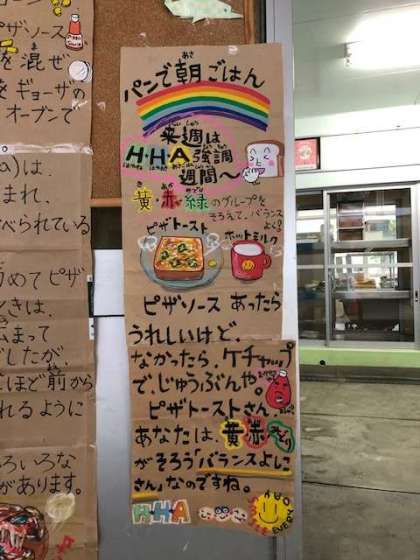 ピザソース
を混ぜ
ギョーザの
オーブンで
a)は
まれ、
べられている
うめてピザ
きは、
広まって
したが
ほど前から
れるように
ろいろな
があります。
あさ
パンで朝ごはん
らいしゅう
来週は
H・H・A強調
週間〜
き あか みどり
黄赤緑のグループを
そろえて、バランス
よく!
ピザトースト
ホットミルク
ピザソースあったら
うれしいけど、
なかったら、ケチャップ
で、じゅうぶんや。
ピザトーストさん、
あなたは、黄赤みどり
がそろう「バランスよしこ
さん」なのですね。
H・H・A